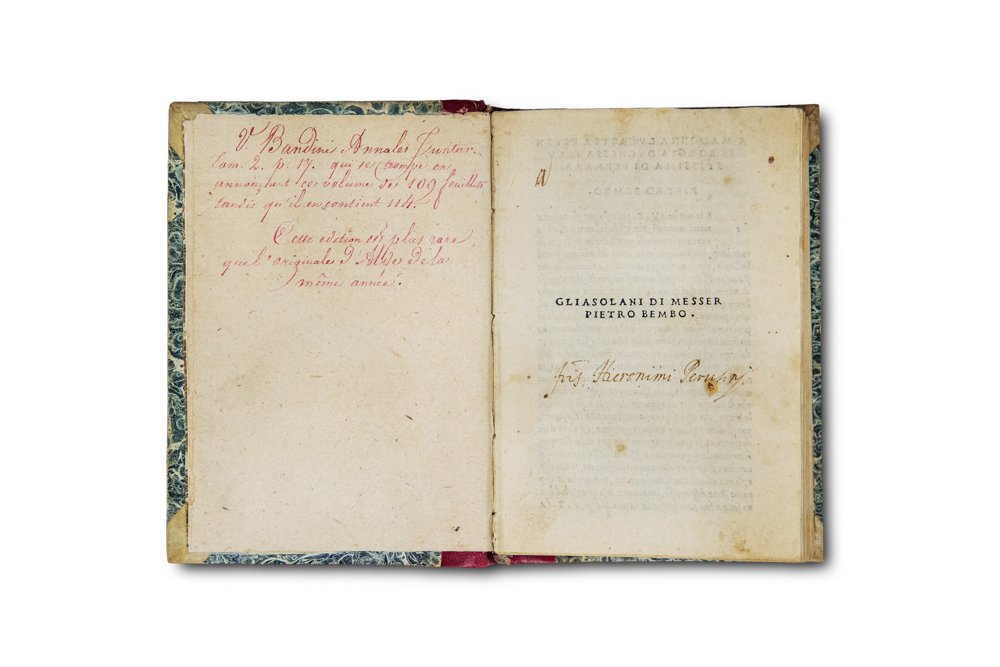 V. Bandini Annales Juntar.
tom. 2. p. 17. qui se trompe en
annonçant ce volume de 109 feuillets
tandis qu'il en contient 114.
Cette edition est plus rare
que l'originale d'Alde de la
même année.
a
GLIASOLANI DI MESSER
PIETRO BEMBO.
Hieronimi